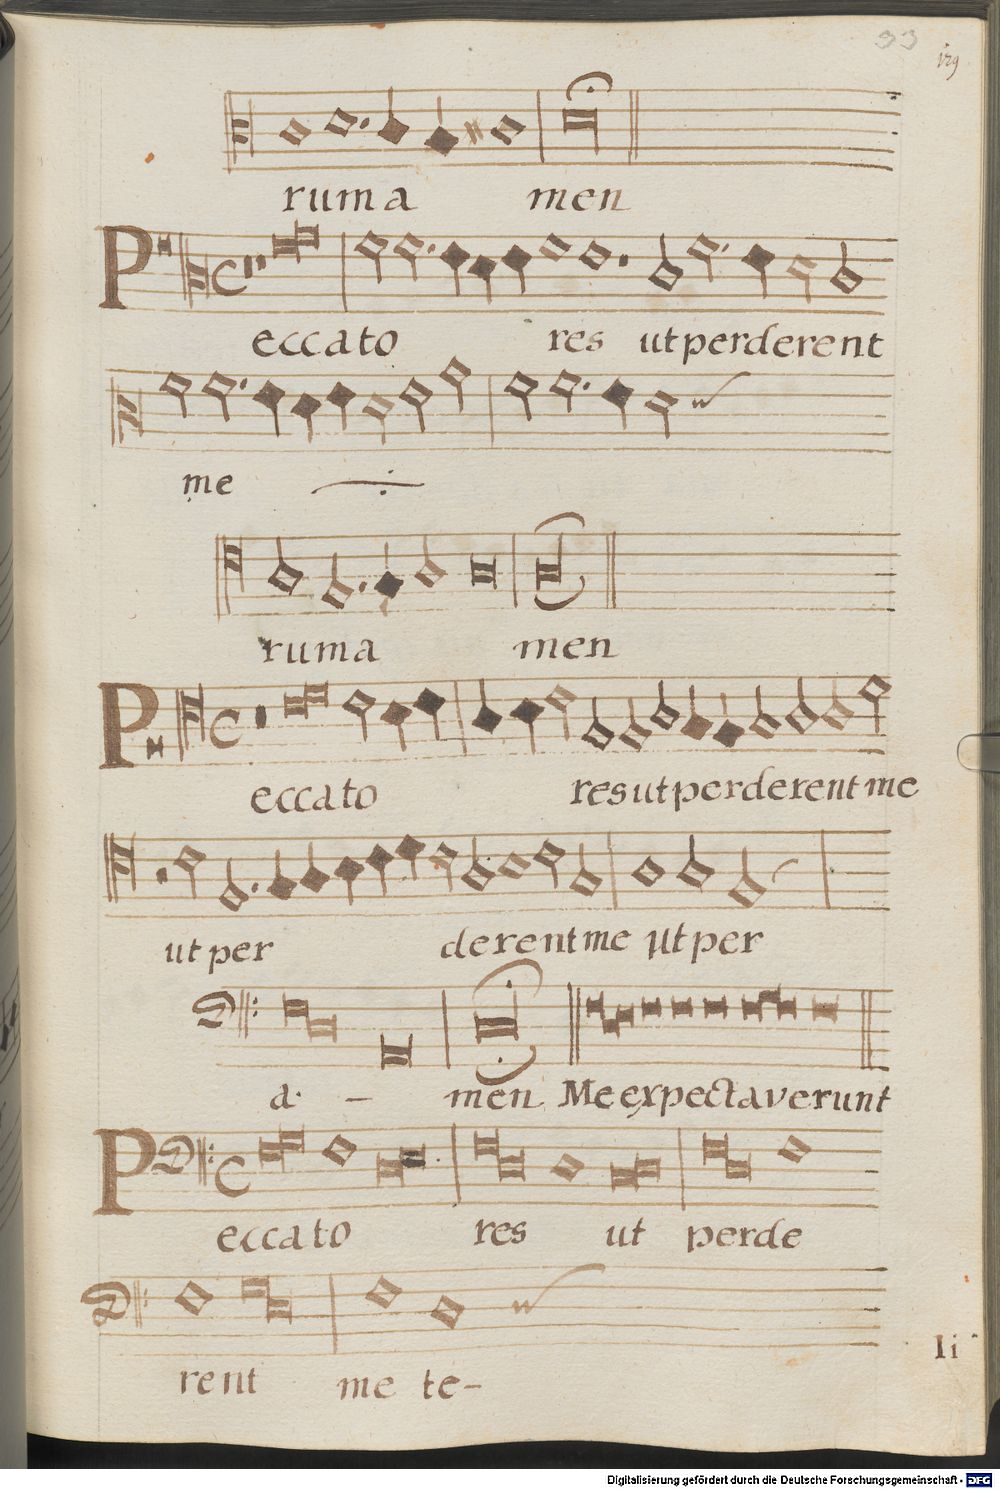 93
129
rum a men
Peccato res ut perderent
me
rum a men
Peccato res ut perderent me
ut per derent me ut per
a - men Me expectaverunt
Peccato res ut perde
rent me te-
Ii
Digitalisierung gefördert durch die Deutsche Forschungsgemeinschaft - DFG